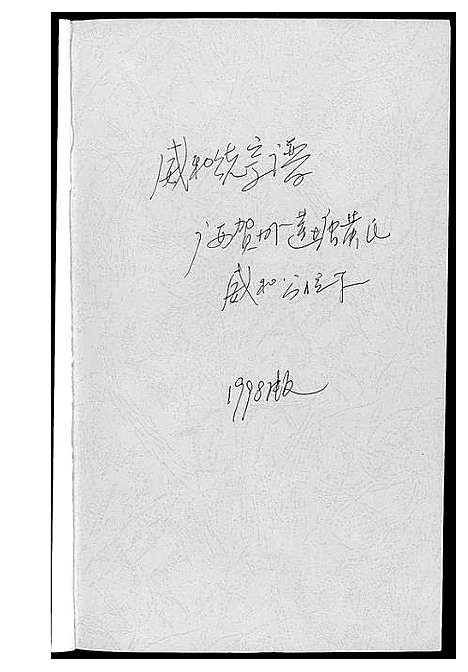 威和统宗谱
广西贺州莲塘黄氏
威和公位下
1998版